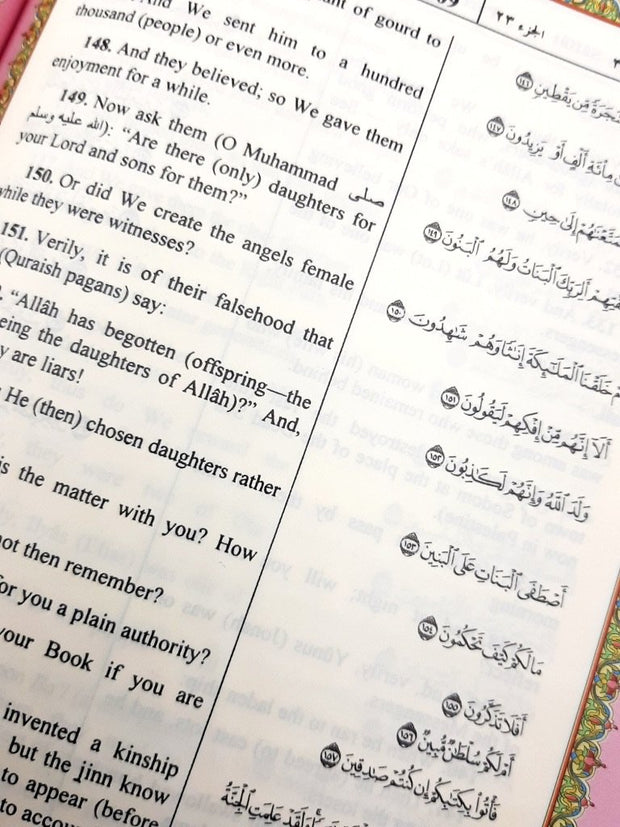 And We sent him to a hundred
thousand (people) or even more.
148. And they believed; so We gave them
enjoyment for a while.
149. Now ask them (O Muhammad صلى
الله عليه وسلم): "Are there (only) daughters for
your Lord and sons for them?"
150. Or did We create the angels female
while they were witnesses?
151. Verily, it is of their falsehood that
(Quraish pagans) say:
"Allâh has begotten (offspring—the
being the daughters of Allâh)?" And,
are liars!
He (then) chosen daughters rather
is the matter with you? How
not then remember?
for you a plain authority?
your Book if you are
invented a kinship
but the jinn know
to appear (before
of gourd to
الجزء ٢٣
مِّن يَقْطِينٍ ١٤٦
مِاْئَةِ أَلْفٍ أَوْ يَزِيدُونَ ١٤٧
إِلَىٰ حِينٍ ١٤٨
أَلِرَبِّكَ ٱلْبَنَاتُ وَلَهُمُ ٱلْبَنُونَ ١٤٩
خَلَقْنَا ٱلْمَلَٰٓئِكَةَ إِنَٰثًا وَهُمْ شَٰهِدُونَ ١٥٠
أَلَآ إِنَّهُم مِّنْ إِفْكِهِمْ لَيَقُولُونَ ١٥١
وَلَدَ ٱللَّهُ وَإِنَّهُمْ لَكَٰذِبُونَ ١٥٢
أَصْطَفَى ٱلْبَنَاتِ عَلَى ٱلْبَنِينَ ١٥٣
مَا لَكُمْ كَيْفَ تَحْكُمُونَ ١٥٤
أَفَلَا تَذَكَّرُونَ ١٥٥
أَمْ لَكُمْ سُلْطَٰنٌ مُّبِينٌ ١٥٦
فَأْتُوا۟ بِكِتَٰبِكُمْ إِن كُنتُمْ صَٰدِقِينَ ١٥٧
وَلَقَدْ عَلِمَتِ ٱلْجِنَّةُ